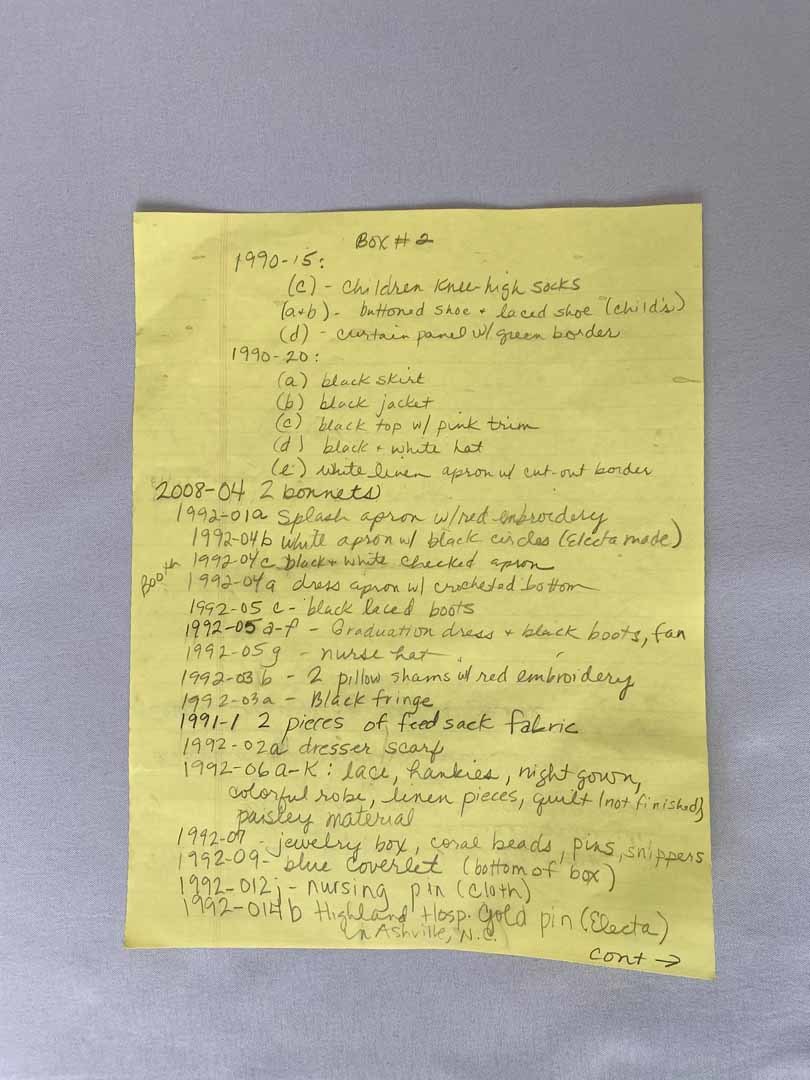 Box # 2
1990-15:
(c) - children knee-high socks
(a+b) - buttoned shoe + laced shoe (child's)
(d) - curtain panel w/ green border
1990-20:
(a) black skirt
(b) black jacket
(c) black top w/ pink trim
(d) black + white hat
(e) white linen apron w/ cut-out border
2008-04 2 bonnets
1992-01a Splash apron w/red embroidery
1992-04b white apron w/ black circles (Electa made)
Booth 1992-04c black + white checked apron
1992-04a dress apron w/ crocheted bottom
1992-05 c - black laced boots
1992-05 a-f - Graduation dress + black boots, fan
1992-05g - nurse hat
1992-03 b - 2 pillow shams w/ red embroidery
1992-03a - Black fringe
1991-1 2 pieces of feed sack fabric
1992-02a dresser scarf
1992-06 a-K: lace, hankies, night gown,
colorful robe, linen pieces, quilt (not finished)
paisley material
1992-07 - jewelry box, coral beads, pins, snippers
1992-09- blue coverlet (bottom of box)
1992-012j - nursing pin (cloth)
1992-014b Highland Hosp. Gold pin (Electa)
in Ashville, N.C.
cont →